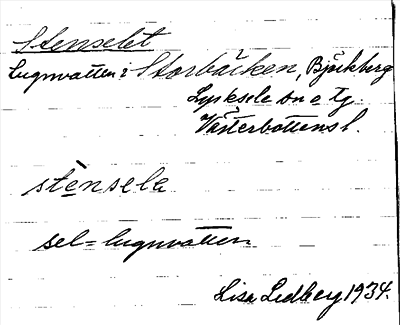 Stenselet
lugnvatten i Storbäcken, Björkberg
Lycksele sn o tg
Västerbottens l.
stensela
sel = lugnvatten
Lisa Lidberg 1934.